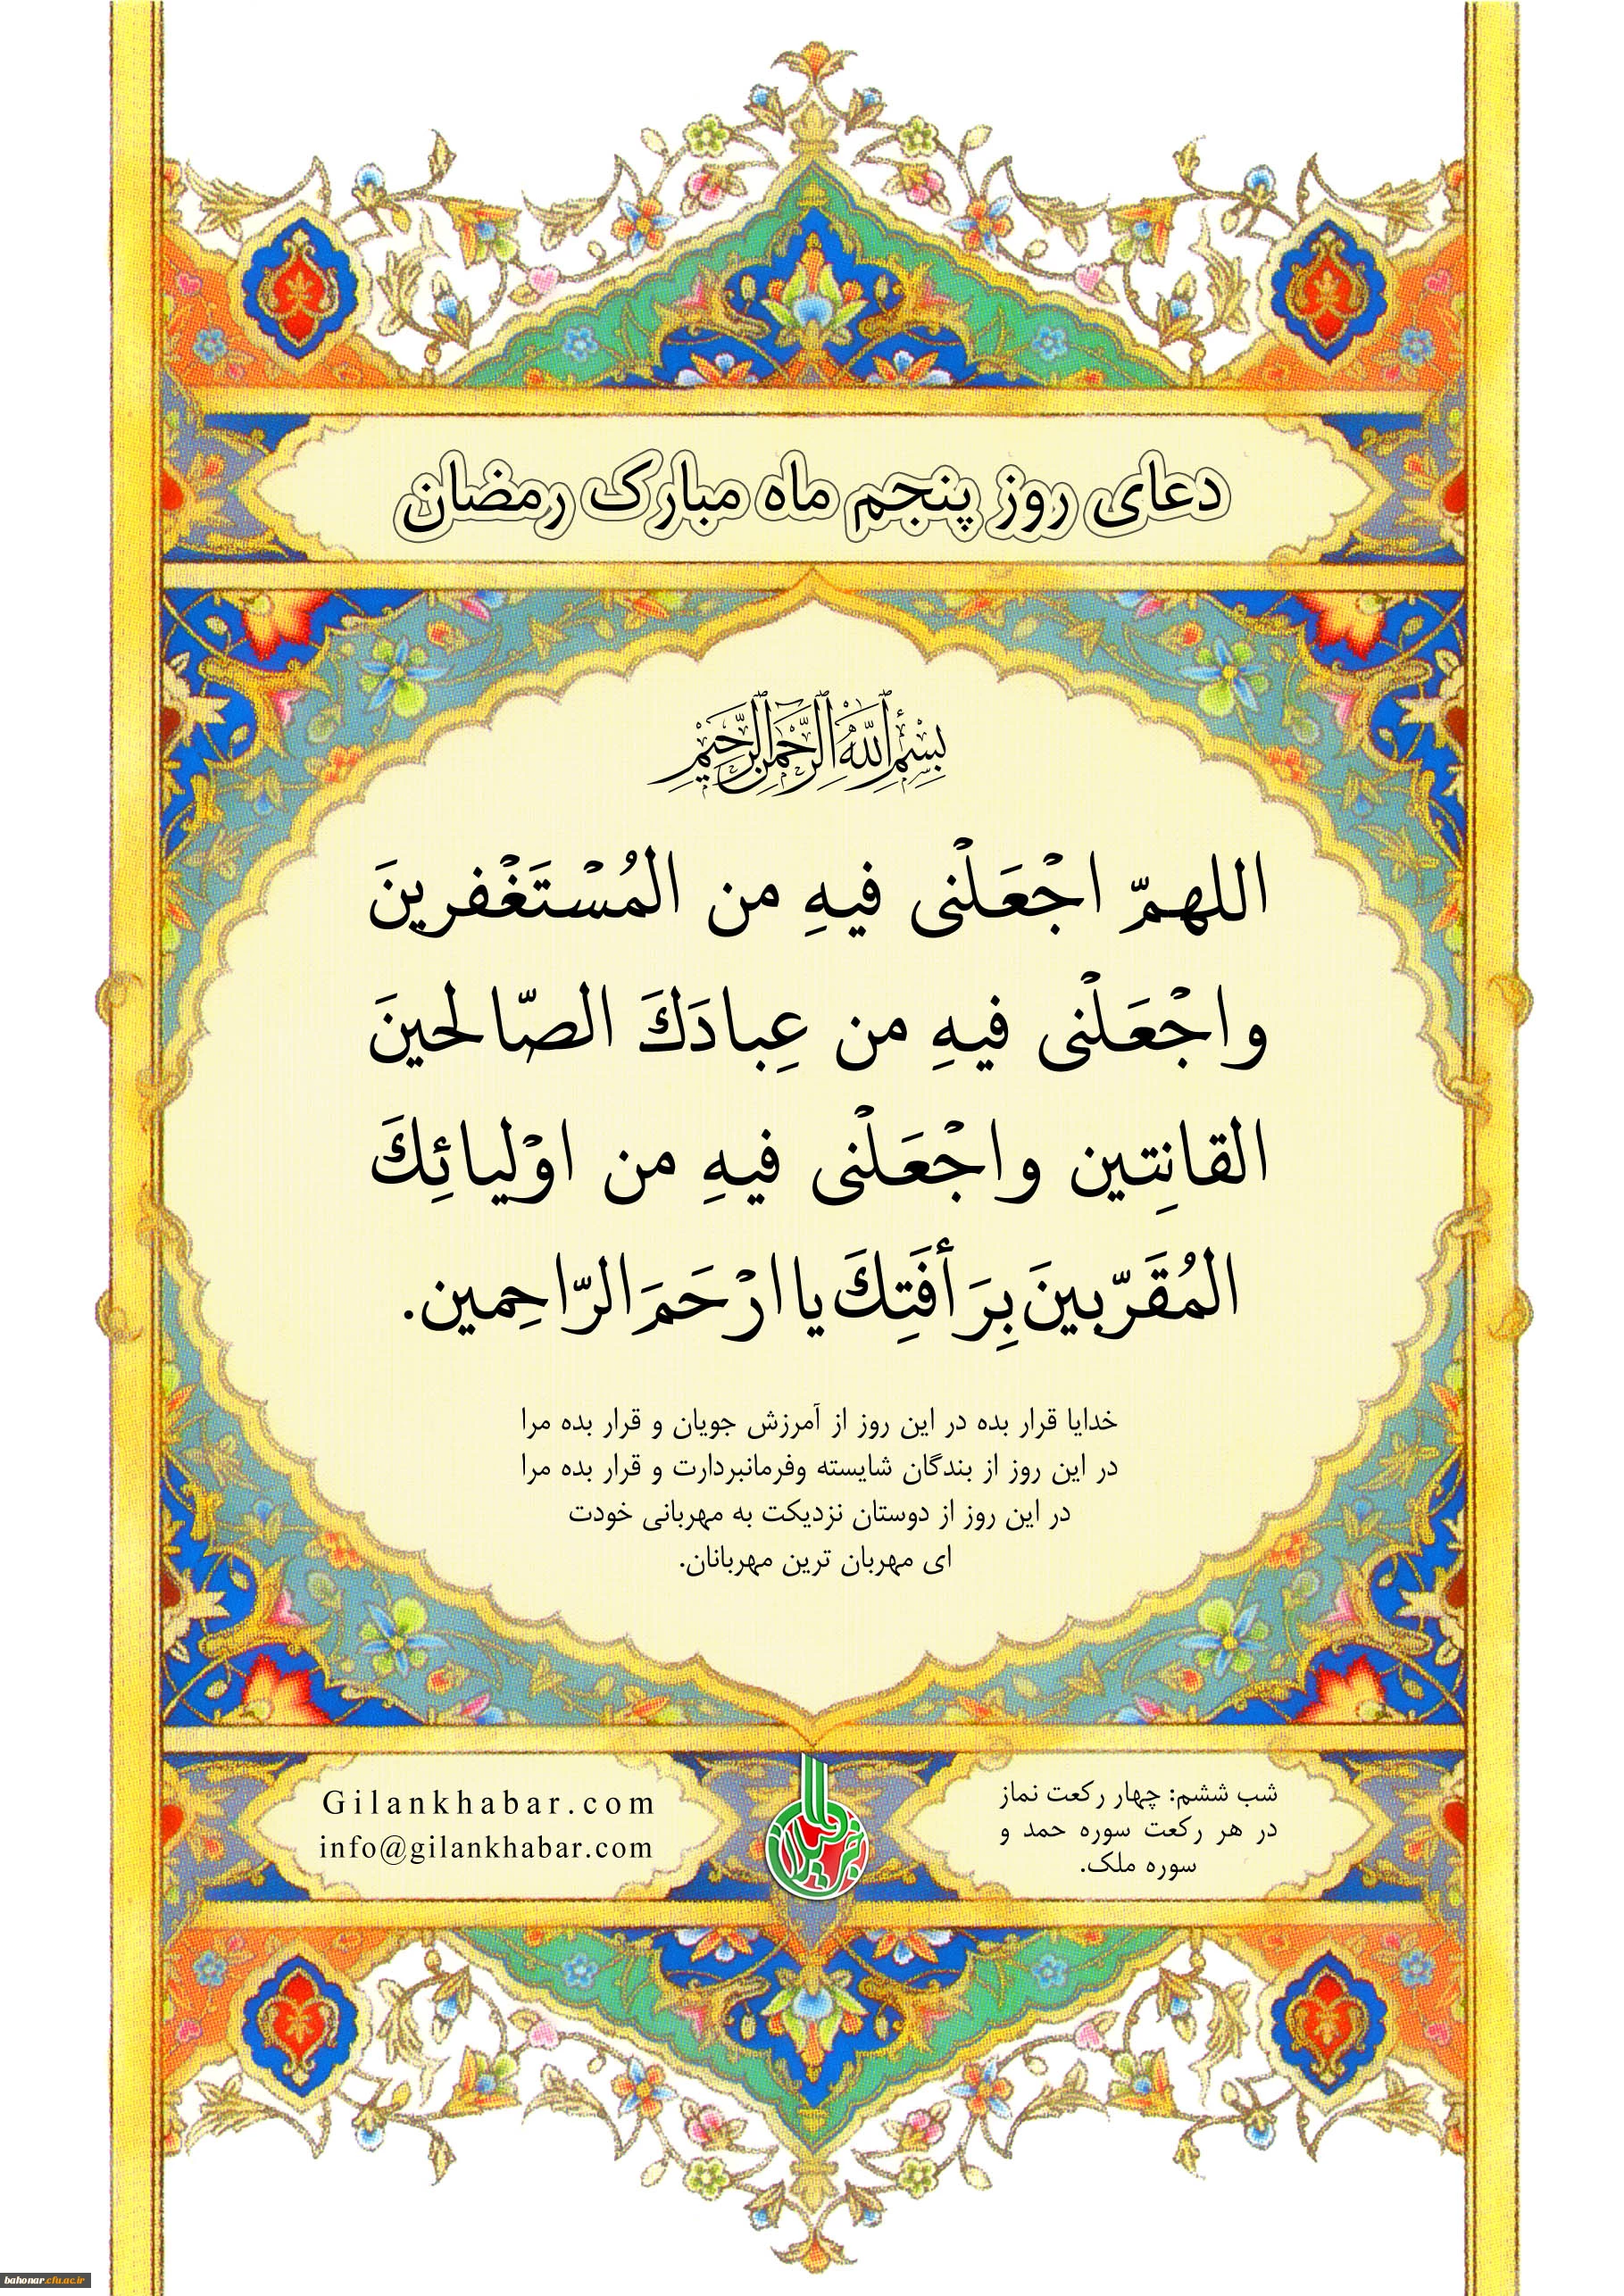 دعای روز پنجم ماه مبارک رمضان
بِسْمِ اللَّهِ الرَّحْمَنِ الرَّحِيمِ
اللهمّ اجْعَلْنی فیهِ من المُسْتَغْفرینَ
واجْعَلْنی فیهِ من عِبادَكَ الصّالحینَ
القانِتین واجْعَلْنی فیهِ من اوْلیائِكَ
المُقَرّبینَ بِرَأفَتِكَ یا ارْحَمَ الرّاحِمین.
خدایا قرار بده در این روز از آمرزش جویان و قرار بده مرا
در این روز از بندگان شایسته وفرمانبردارت و قرار بده مرا
در این روز از دوستان نزدیکت به مهربانی خودت
ای مهربان ترین مهربانان.
شب ششم: چهار رکعت نماز
در هر رکعت سوره حمد و
سوره ملک.
Gilankhabar.com
info@gilankhabar.com
خبر گیلان
bahonar.cfu.ac.ir